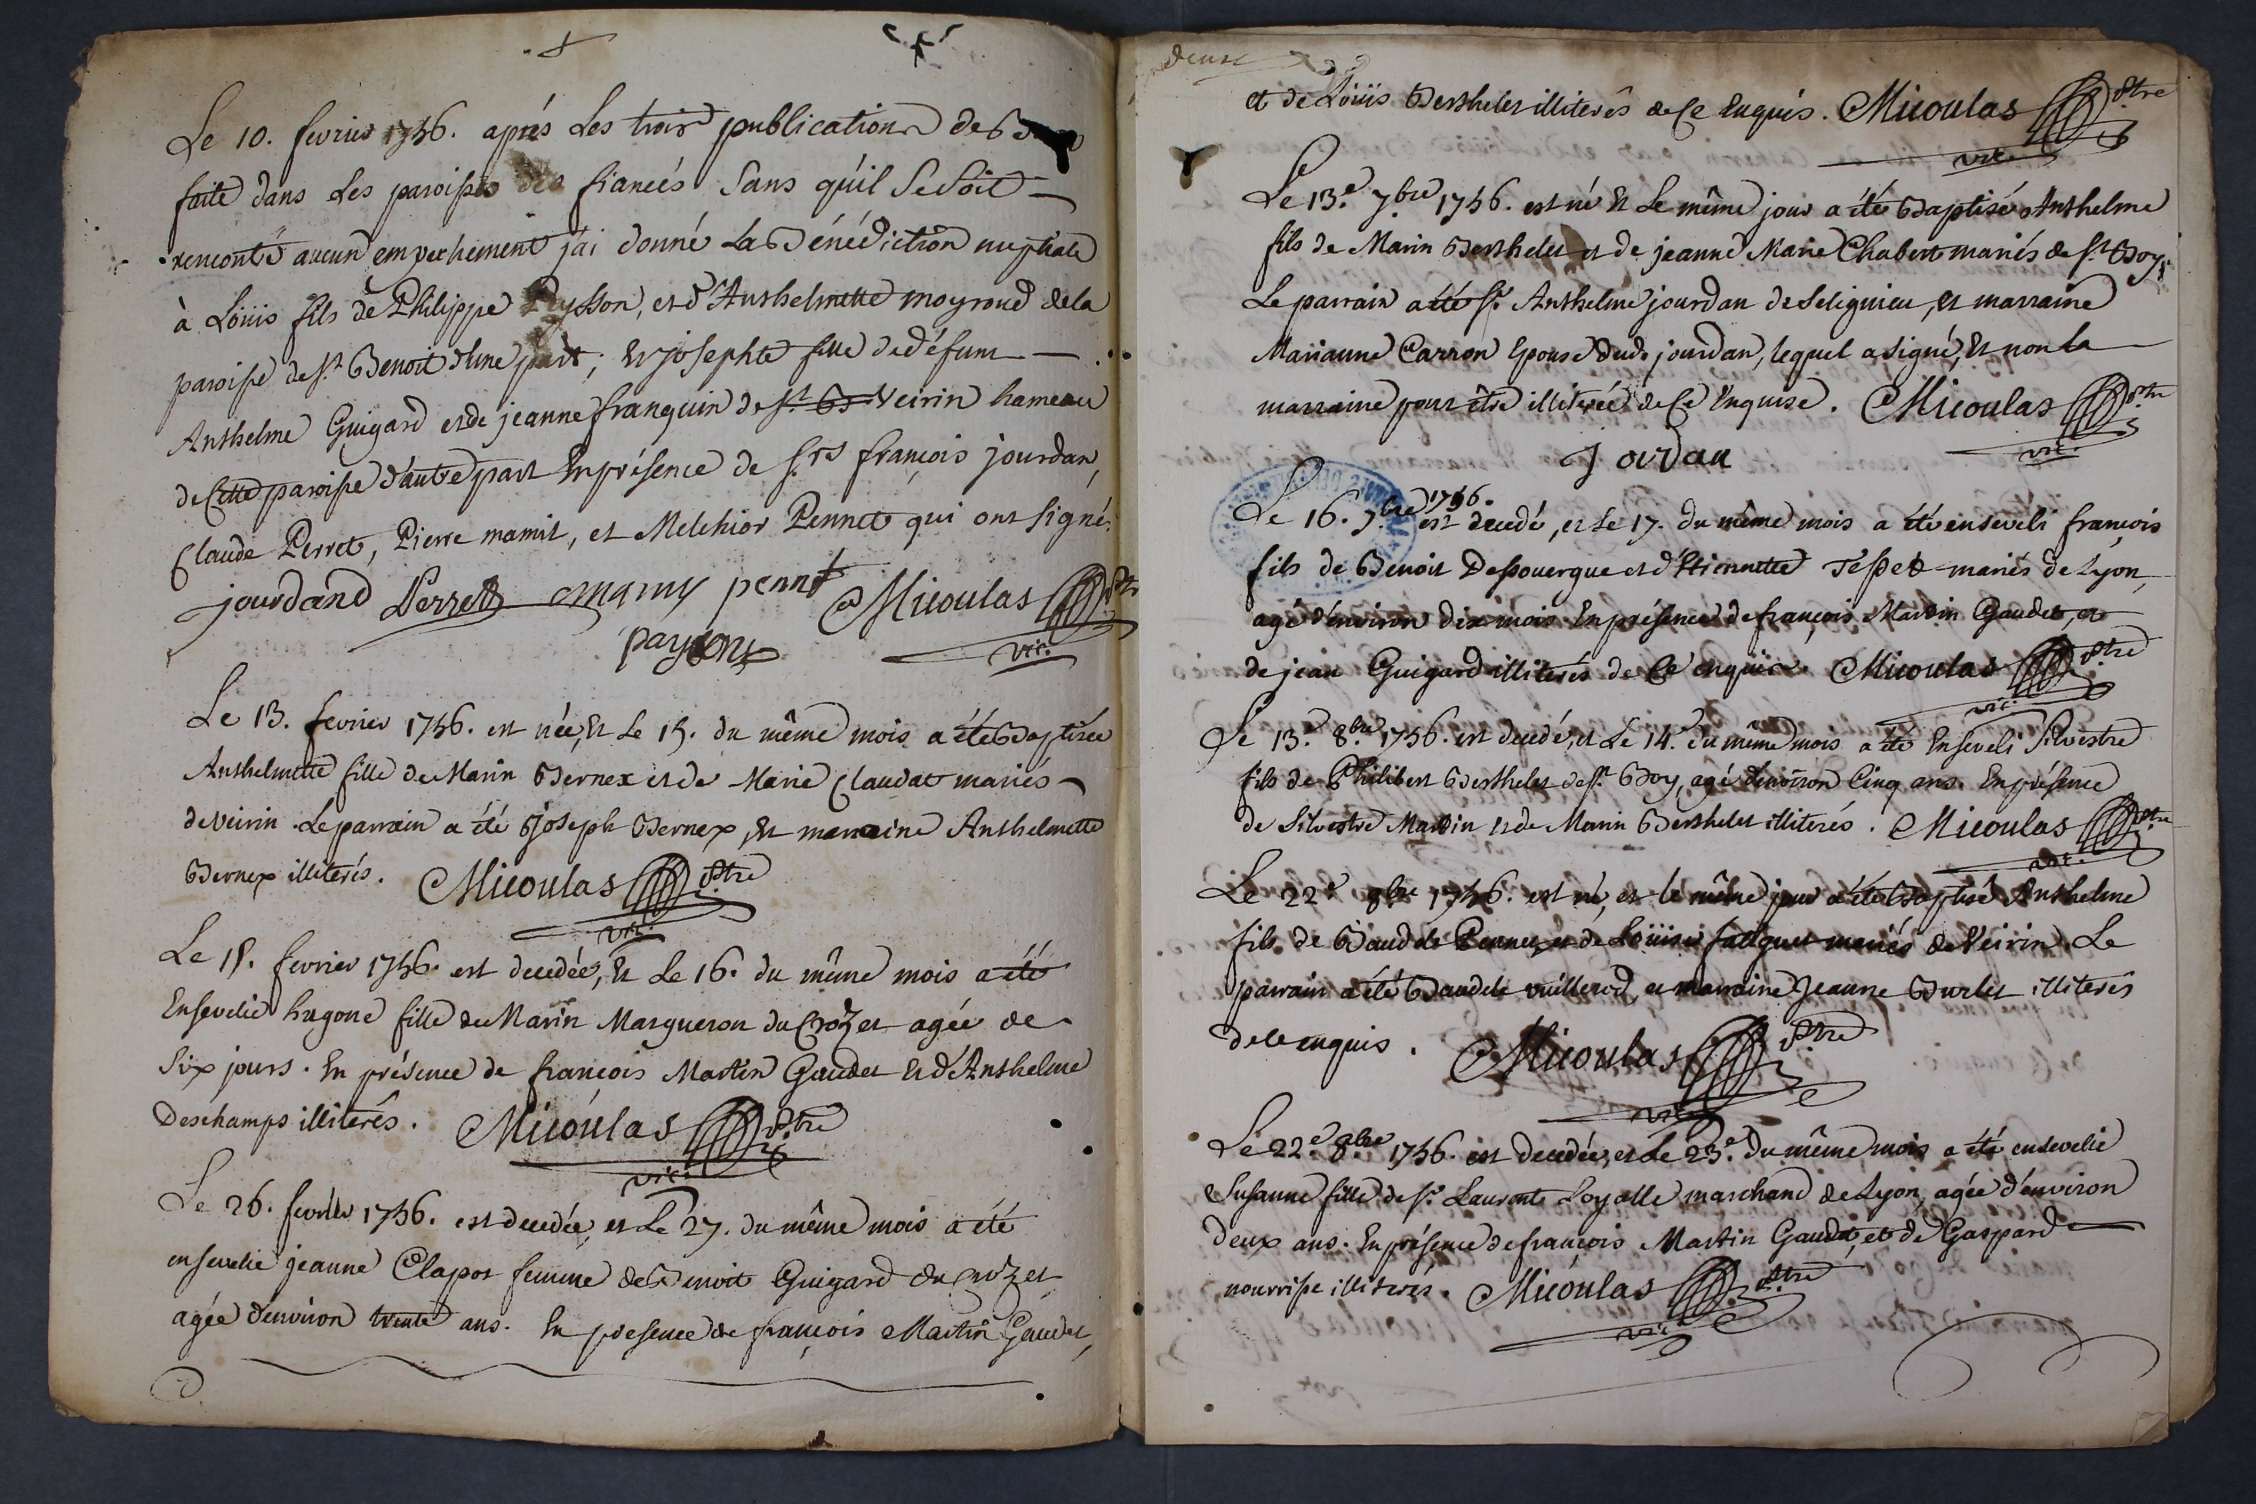 Le 10. fevrier 1756. aprés les trois publications de
faite dans les paroisses des fiancés sans qu'il se soit
rencontré aucun empechement j'ai donné la Bénédiction nuptiale
à Loüis fils de Philippe Peysson, et d'Anthelmette moyroud de la
paroisse de st Benoit d'une part; Et josephte fille de défunt
Anthelme Guigard et de jeanne franquin de st B Veirin hameau
de Cette paroisse d'autre part En présence de srs françois jourdan,
Claude Perret, Pierre mamit, et Melchior Pennet qui ont signé.
jourdand Perret mamy pennet Micoulas Ptre
payson vic.
Le 13. fevrier 1756. est née, Et Le 15. du même mois a été Baptisée
Anthelmette fille de Marin Bernex et de Marie Claudat mariés
de veirin. Le parrain a été joseph Bernex, Et marraine Anthelmette
Bernex illiterés. Micoulas Ptre
vic.
Le 15. fevrier 1756. est decedée, Et Le 16. du même mois a été
Ensevelie hugone fille de Marin Margueron du Crozet agée de
Six jours. En présence de françois Martin Gaudet Et d'Anthelme
Deschamps illiterés. Micoulas Ptre
vic.
Le 26. fevrier 1756. est decedée, et Le 27. du même mois a été
ensevelie jeanne Clapot femme de Benoit Guigard du Crozet
agée d'environ trente ans. En presence de françois Martin Gaudet,
et de Loüis Berthelet illiterés de Ce Enquis. Micoulas Ptre
vic.
Le 13.e 7.bre 1756. est né Et Le même jour a été Baptisé Anthelme
fils de Marin Berthelet et de jeanne Marie Chabert mariés de st Boys.
Le parrain a été sr. Anthelme jourdan de Seliguieu, Et marraine
Marianne Carron Epouse dud. jourdan, lequel a signé, Et non la
marraine pour être illiterée de Ce Enquise. Micoulas Ptre
Jordan vic.
Le 16. 7.bre 1756. est decedé, et Le 17. du même mois a été enseveli françois
fils de Benoit Depouergue et d'Etiennette Tesset mariés de Lyon,
agé d'environ dix mois En présence de françois Martin Gaudet, et
de jean Guigard illiterés de Ce enquis. Micoulas Ptre
vic.
Le 13.e 8.bre 1756. est decedé, et Le 14.e du même mois a été Enseveli Silvestre
fils de Philibert Berthelet de st. Boy, agé d'environ Cinq ans. En présence
de Silvestre Martin et de Marin Berthelet illiterés. Micoulas Ptre
vic.
Le 22.e 8bre 1756. est né, et le même jour a été Baptisé Anthelme
fils de Baudele Pennet et de Loüise falquet mariés de Veirin. Le
parrain a été Baudele vuillerod, et marraine Jeanne Burlet illiterés
de ce enquis. Micoulas Ptre
vic.
Le 22.e 8.bre 1756. est decedée, et Le 23.e du même mois a été ensevelie
Susanne fille de sr. Laurent Loyalle marchand de Lyon, agée d'environ
deux ans. En présence de françois Martin Gaudet, et de Gaspard
nourrisse illiterés. Micoulas Ptre
vic.